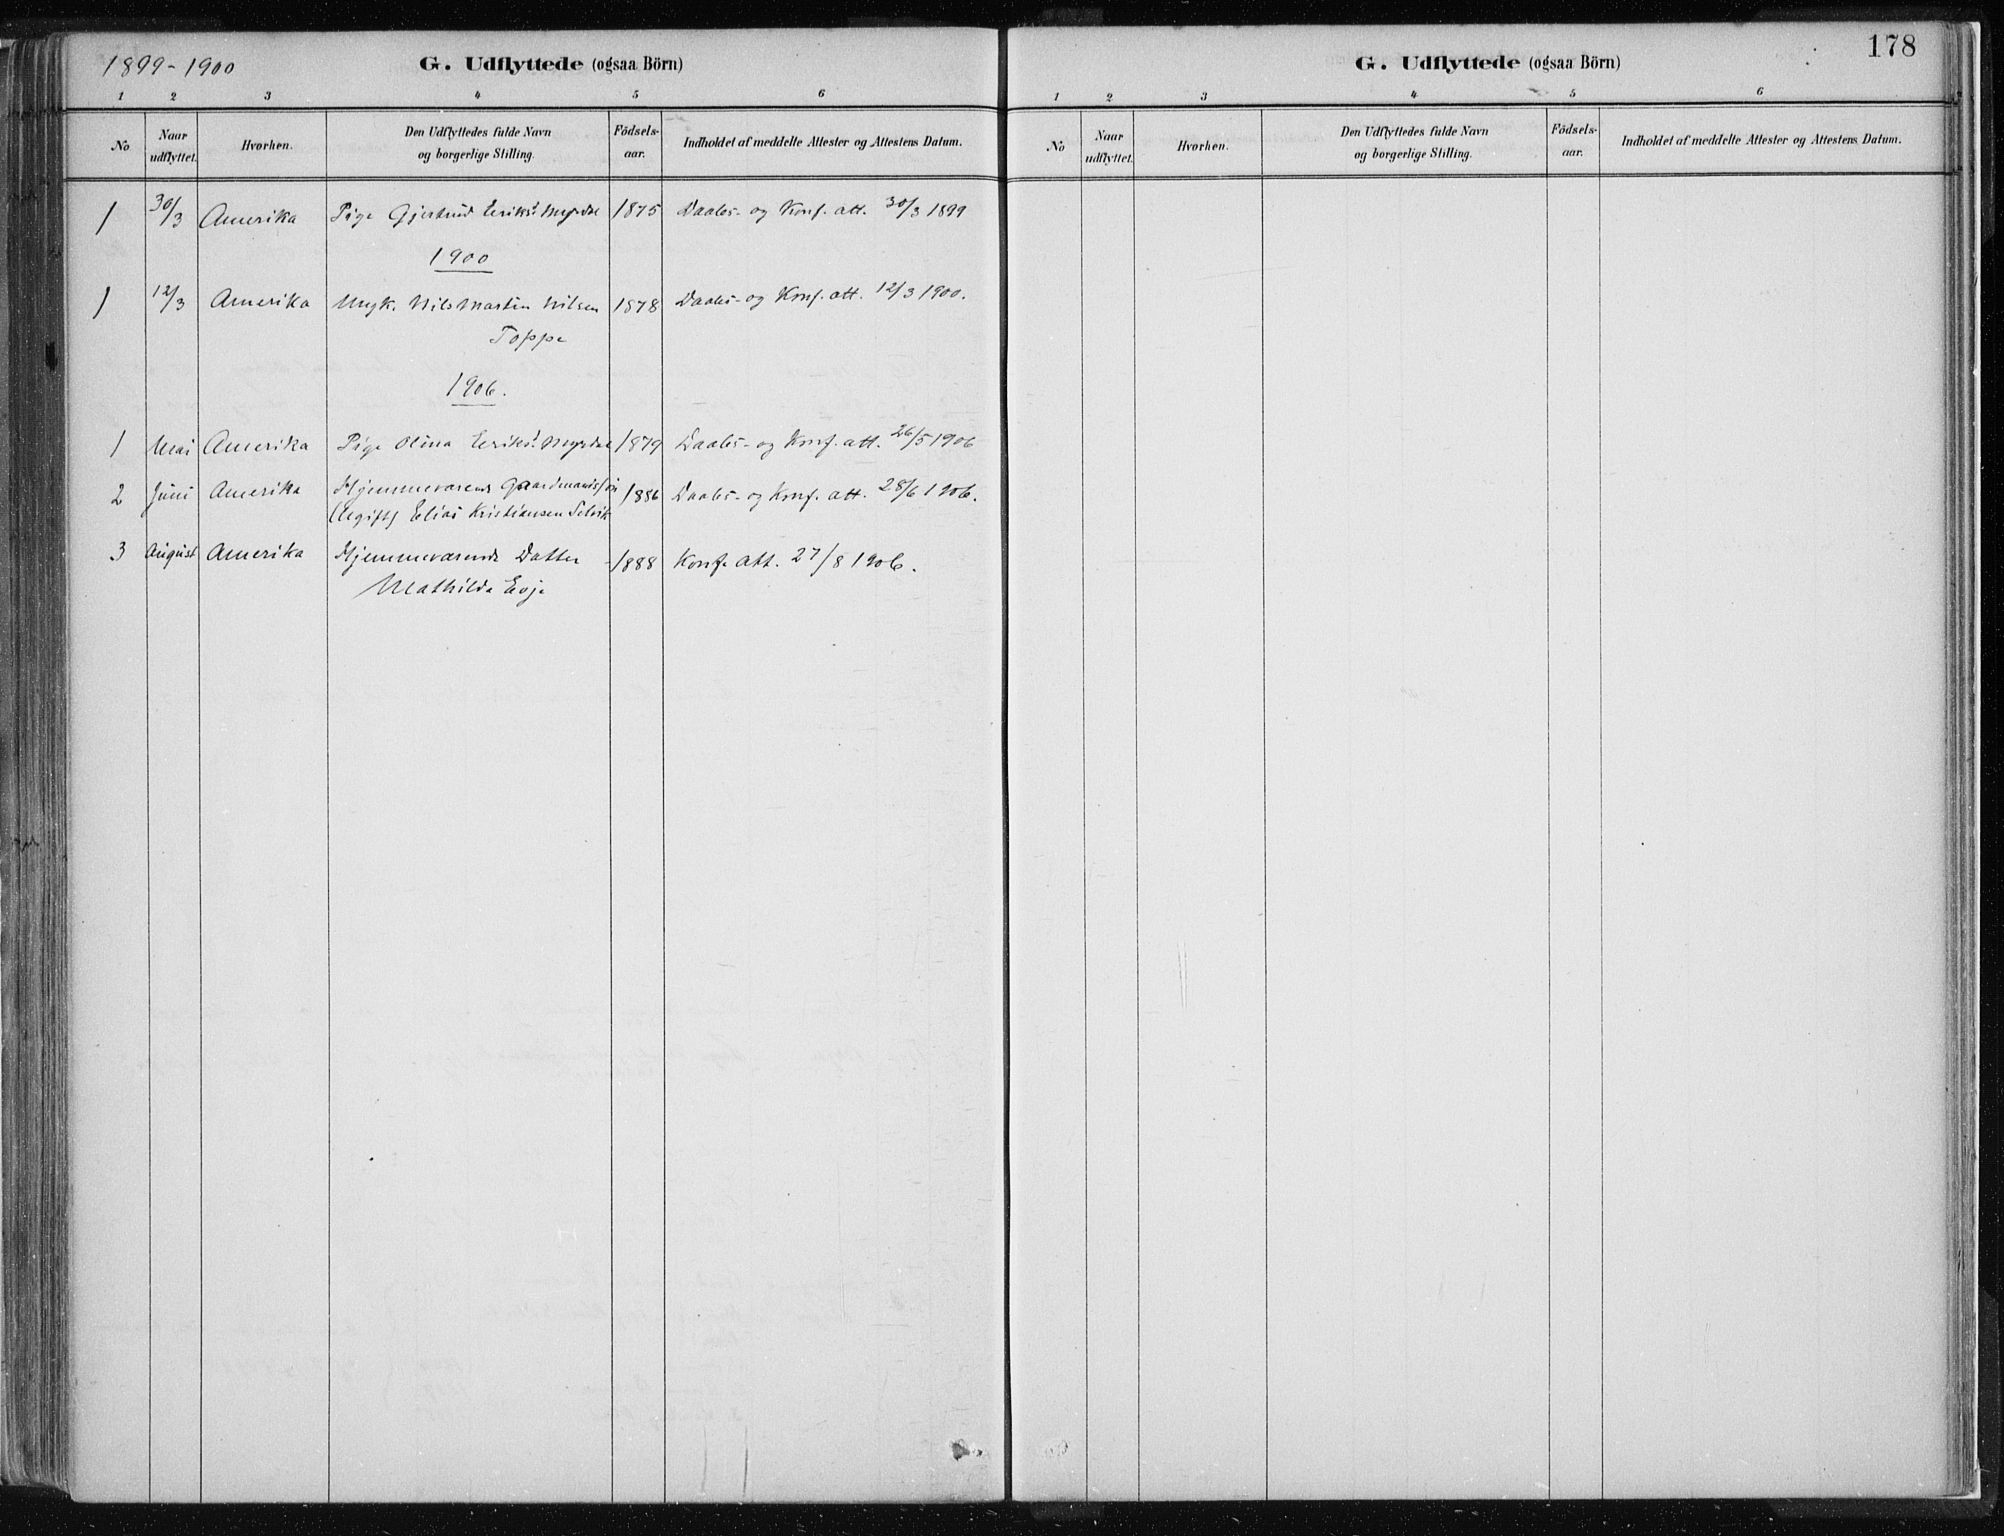 1899-1900
G. Udflyttede (ogsaa Börn)
1 2 3 4 5 6
No Naar udflyttet. Hvorhen. Den Udflyttedes fulde Navn og borgerlige Stilling. Födsels-aar. Indholdet af meddelte Attester og Attestens Datum.
1 30/3 Amerika Pige Gjertrud Eriksd. Myrdal 1875 Daabs- og Konf. att. 30/3 1899
1900
1 12/3 Amerika Ungk. Nils Martin Nilsen 1878 Daabs- og Konf. att. 12/3 1900.
Toppe
1906.
1 Mai Amerika Pige Olina Eriksd. Myrdal 1879 Daabs- og Konf. att. 26/5 1906
2 Juni Amerika Hjemmeværende Gaardmandssön 1886 Daabs- og Konf. att. 28/6 1906.
(Ugift) Elias Kristiansen Selvik
3 August Amerika Hjemmeværende Datter 1888 Konf. att. 27/8 1906.
Mathilda Evje
178
G. Udflyttede (ogsaa Börn)
1 2 3 4 5 6
No Naar udflyttet. Hvorhen. Den Udflyttedes fulde Navn og borgerlige Stilling. Födsels-aar. Indholdet af meddelte Attester og Attestens Datum.